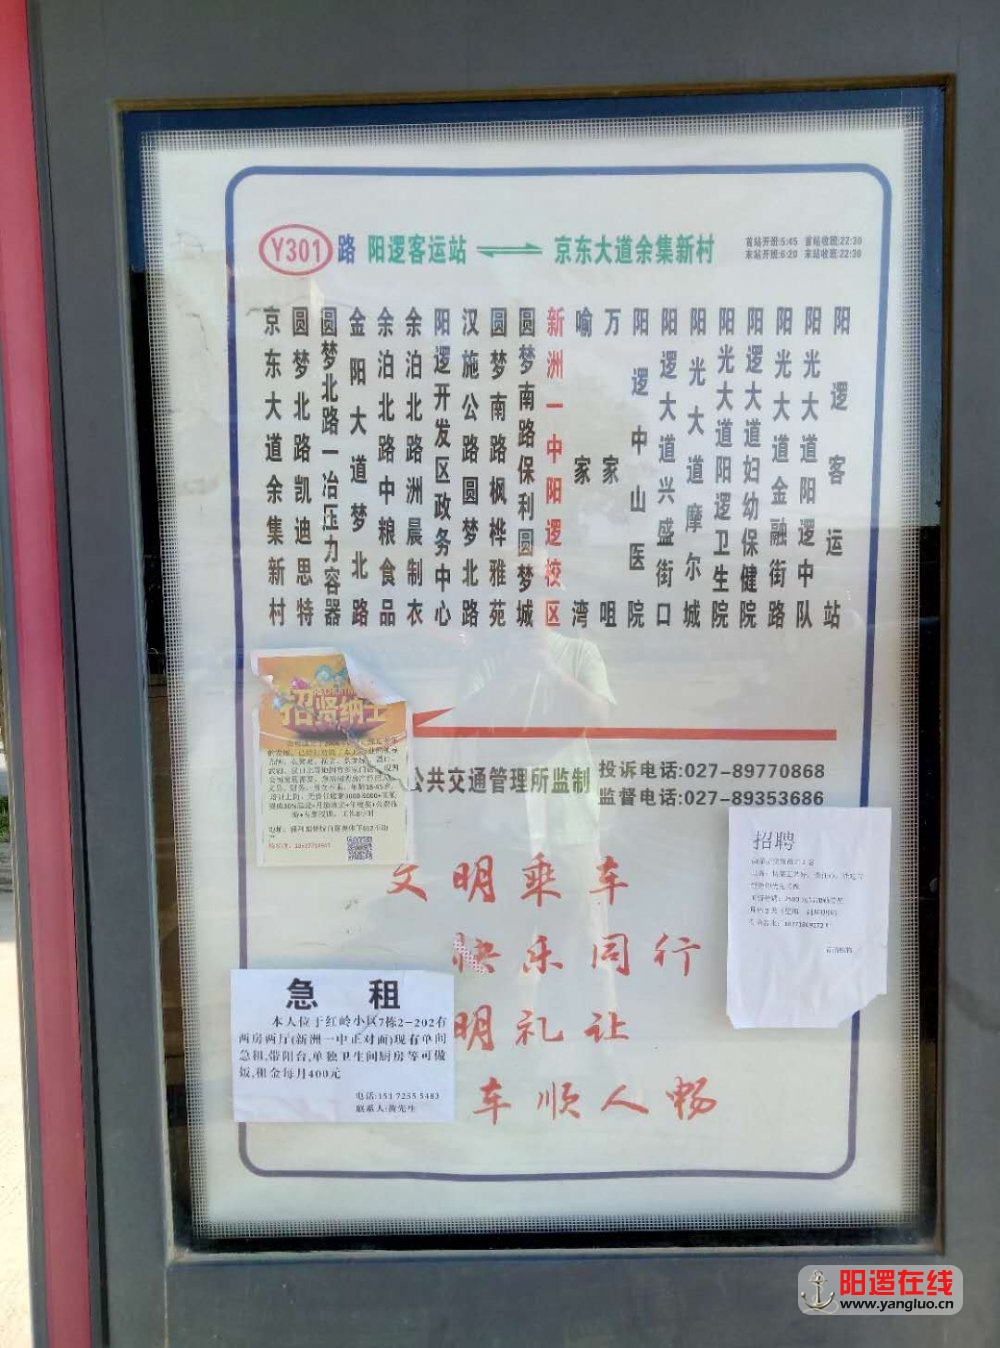 Y301 路 阳逻客运站 京东大道余集新村
首站开班:5:45 首站收班:22:30
末站开班:6:20 末站收班:22:30
京东大道余集新村
圆梦北路凯迪思特
圆梦北路一冶压力容器
金阳大道梦北路
余泊北路中粮食品
余泊北路洲晨制衣
阳逻开发区政务中心
汉施公路圆梦北路
圆梦南路枫桦雅苑
圆梦南路保利圆梦城
新洲一中阳逻校区
喻家湾
万家咀
阳逻中山医院
阳逻大道兴盛街口
阳光大道摩尔城
阳光大道阳逻卫生院
阳逻大道妇幼保健院
阳光大道金融街路
阳光大道阳逻中队
阳逻客运站
招贤纳士
公共交通管理所监制
投诉电话:027-89770868
监督电话:027-89353686
文明乘车
快乐同行
明礼让
车顺人畅
招聘
急 租
本人位于红岭小区7栋2-202有
两房两厅(新洲一中正对面)现有单间
急租,带阳台,单独卫生间厨房等可做
饭,租金每月400元
电话:151 7235 5483
联系人:黄先生
阳逻在线
www.yangluo.cn